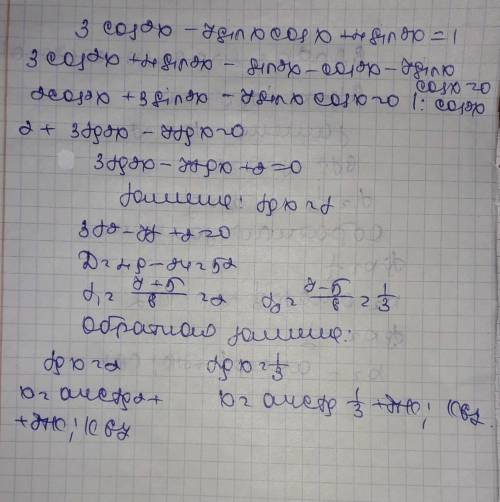 3 cos2x - 7sin x cos x + 4sin2x = 1
3 cos2x + 4sin2x - sin2x - cos2x - 7sin x
cos x = 0
2cos2x + 3sin2x - 7sin x cos x = 0 | : cos2x
2 + 3tg2x - 7tgx = 0
3tg2x - 7tgx + 2 = 0
Замена: tg x = t
3t2 - 7t + 2 = 0
D = 49 - 24 = 52
t₁ = 7+5/6 = 2 t₂ = 7-5/6 = 1/3
Обратная замена:
tg x = 2 tg x = 1/3
x = arctg 2 + x = arctg 1/3 + πk; k∈z.
+ πk; k∈z